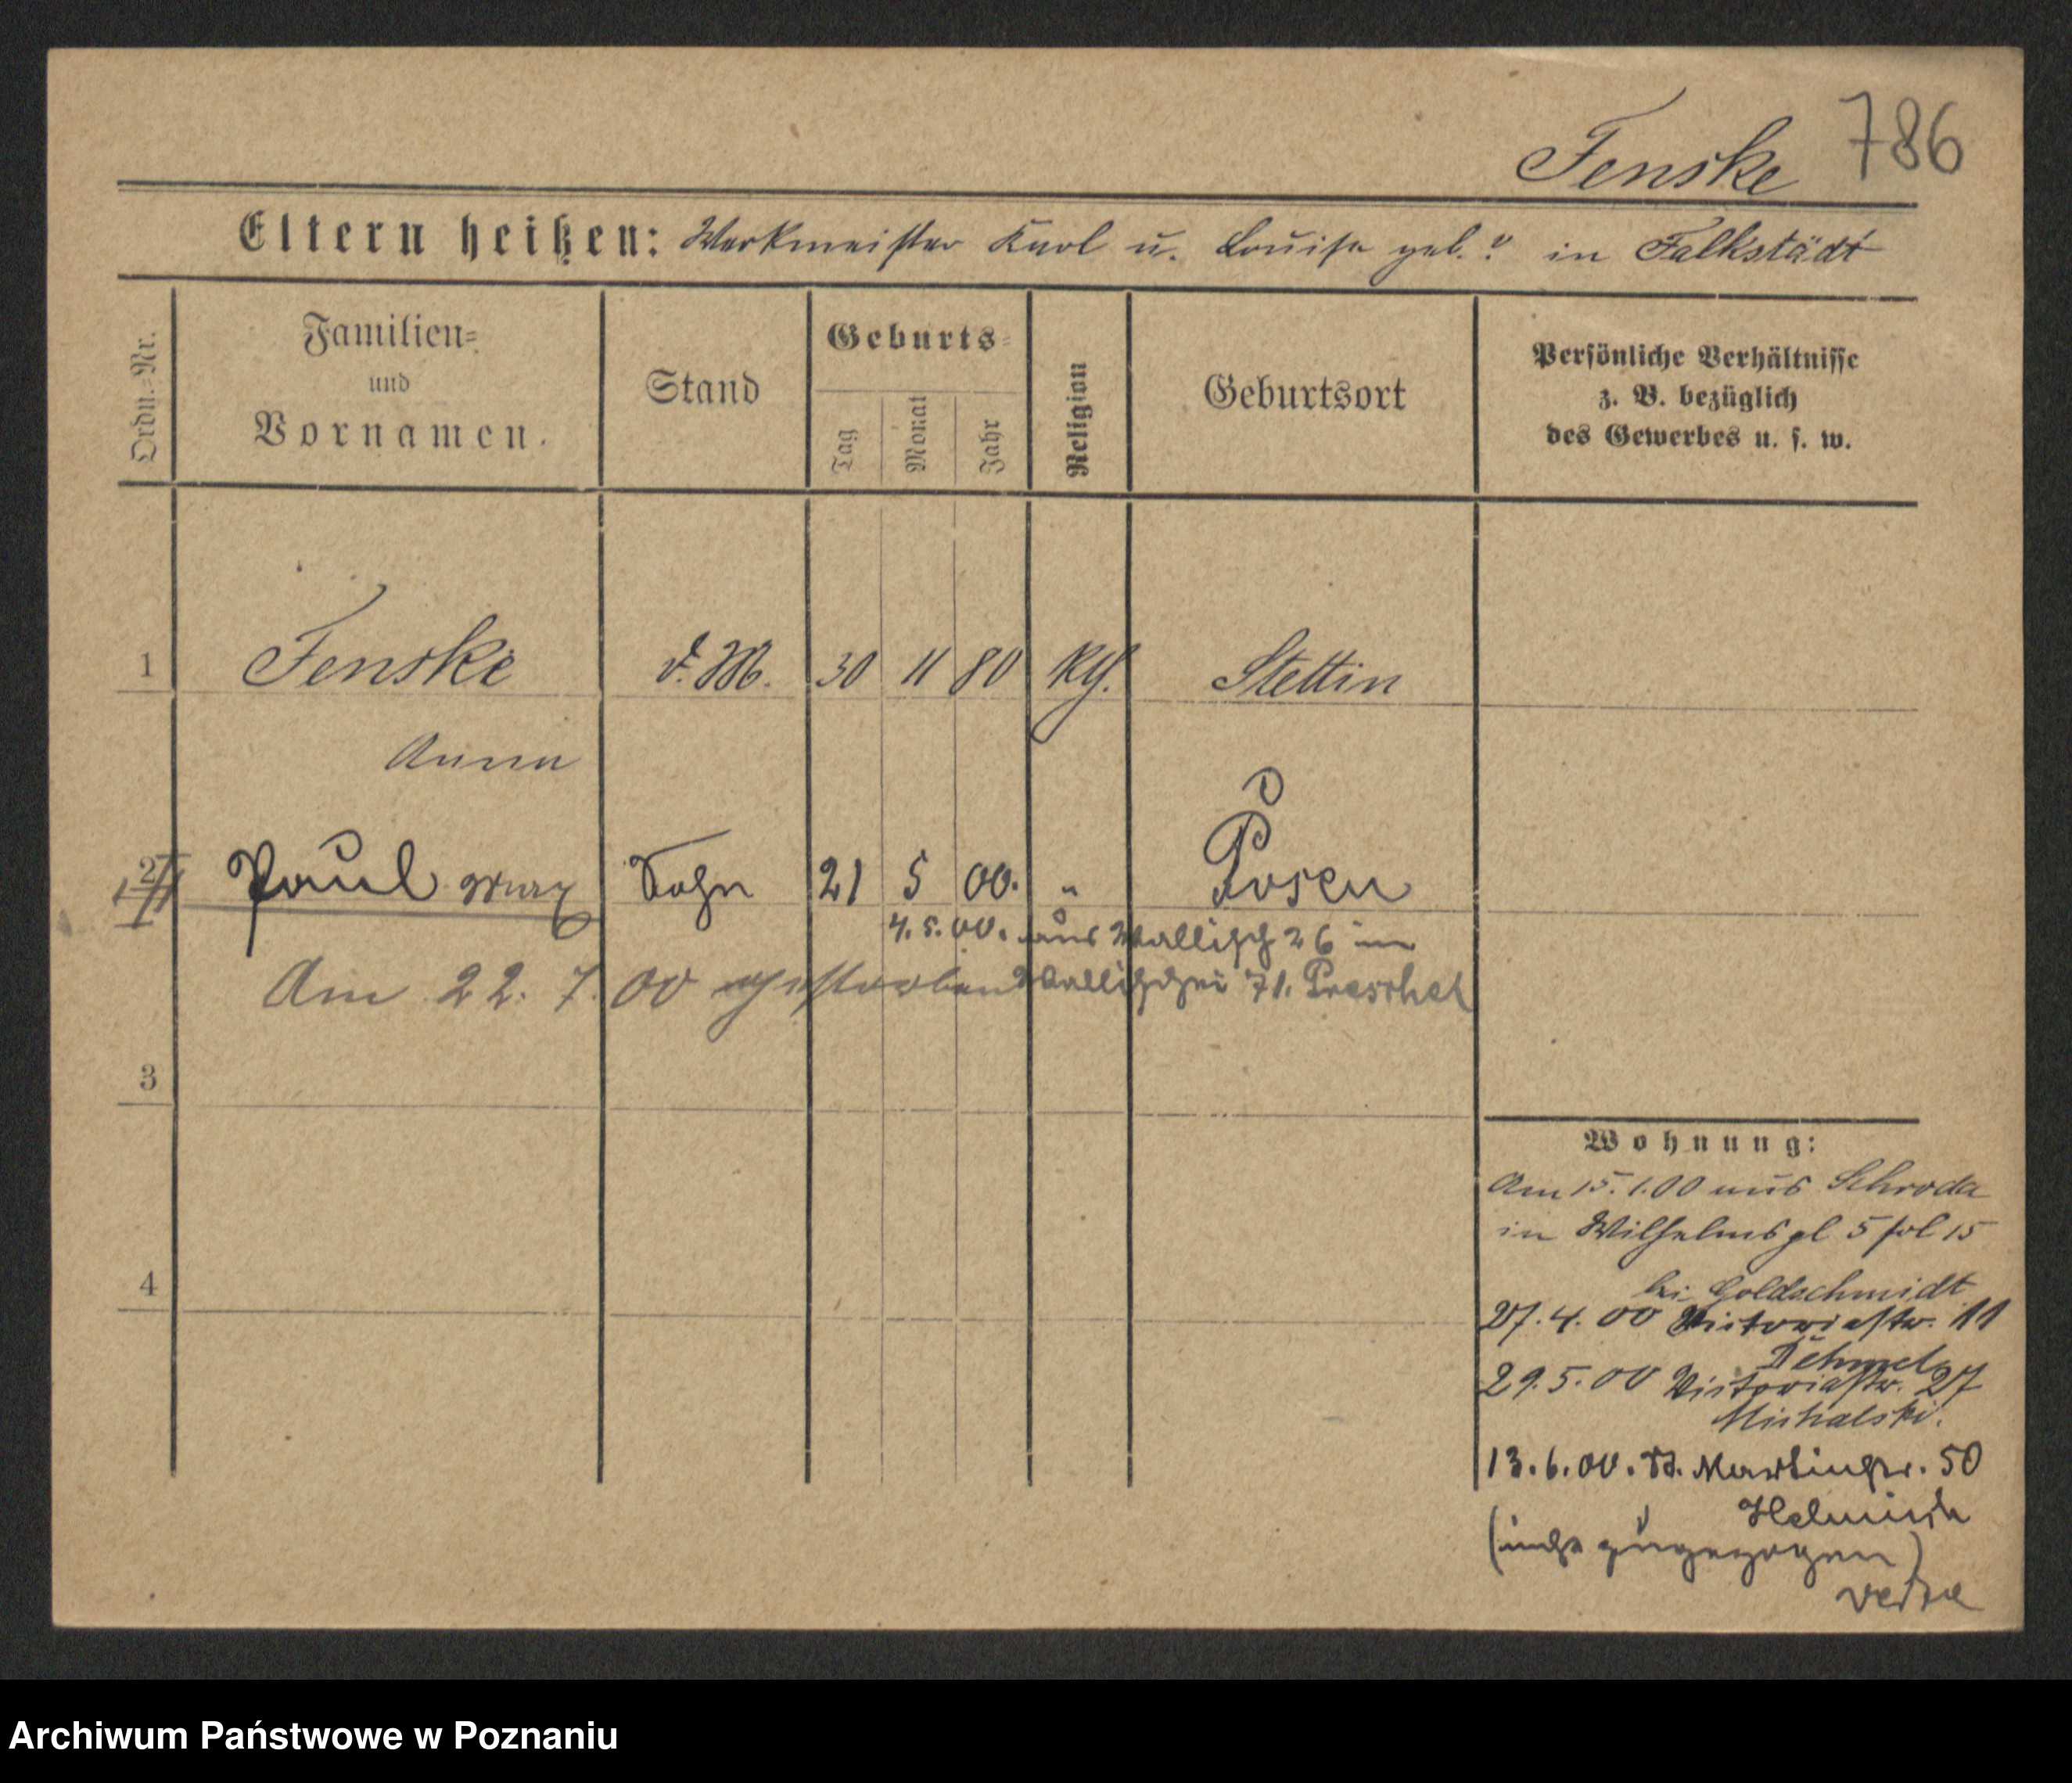 Fenske 786
Eltern heißen: Werkmeister Karl u. Louise geb. ? in Falkstädt
Ordn.-Nr.
Familien- und Vornamen.
Stand
Geburts-
Tag
Monat
Jahr
Religion
Geburtsort
Persönliche Verhältnisse
z. B. bezüglich
des Gewerbes u. s. w.
1 Fenske d. M. 30 11 80 Stettin
Anna
2 Paul Max Sohn 21 5 00. " Posen
4.5.00. aus Wallisch 26 in
Am 22. 7. 00 gestorben Wallischei 71.
3
4
Wohnung:
Am 15.1.00 aus Schroda
in Wilhelmspl 5 15
bei Goldschmidt
27.4.00 Victoriastr. 11
Dehmel
29.5.00 Victoriastr. 27
Michalski.
13.6.00. St. Martinstr. 50
zugezogen)
Archiwum Państwowe w Poznaniu